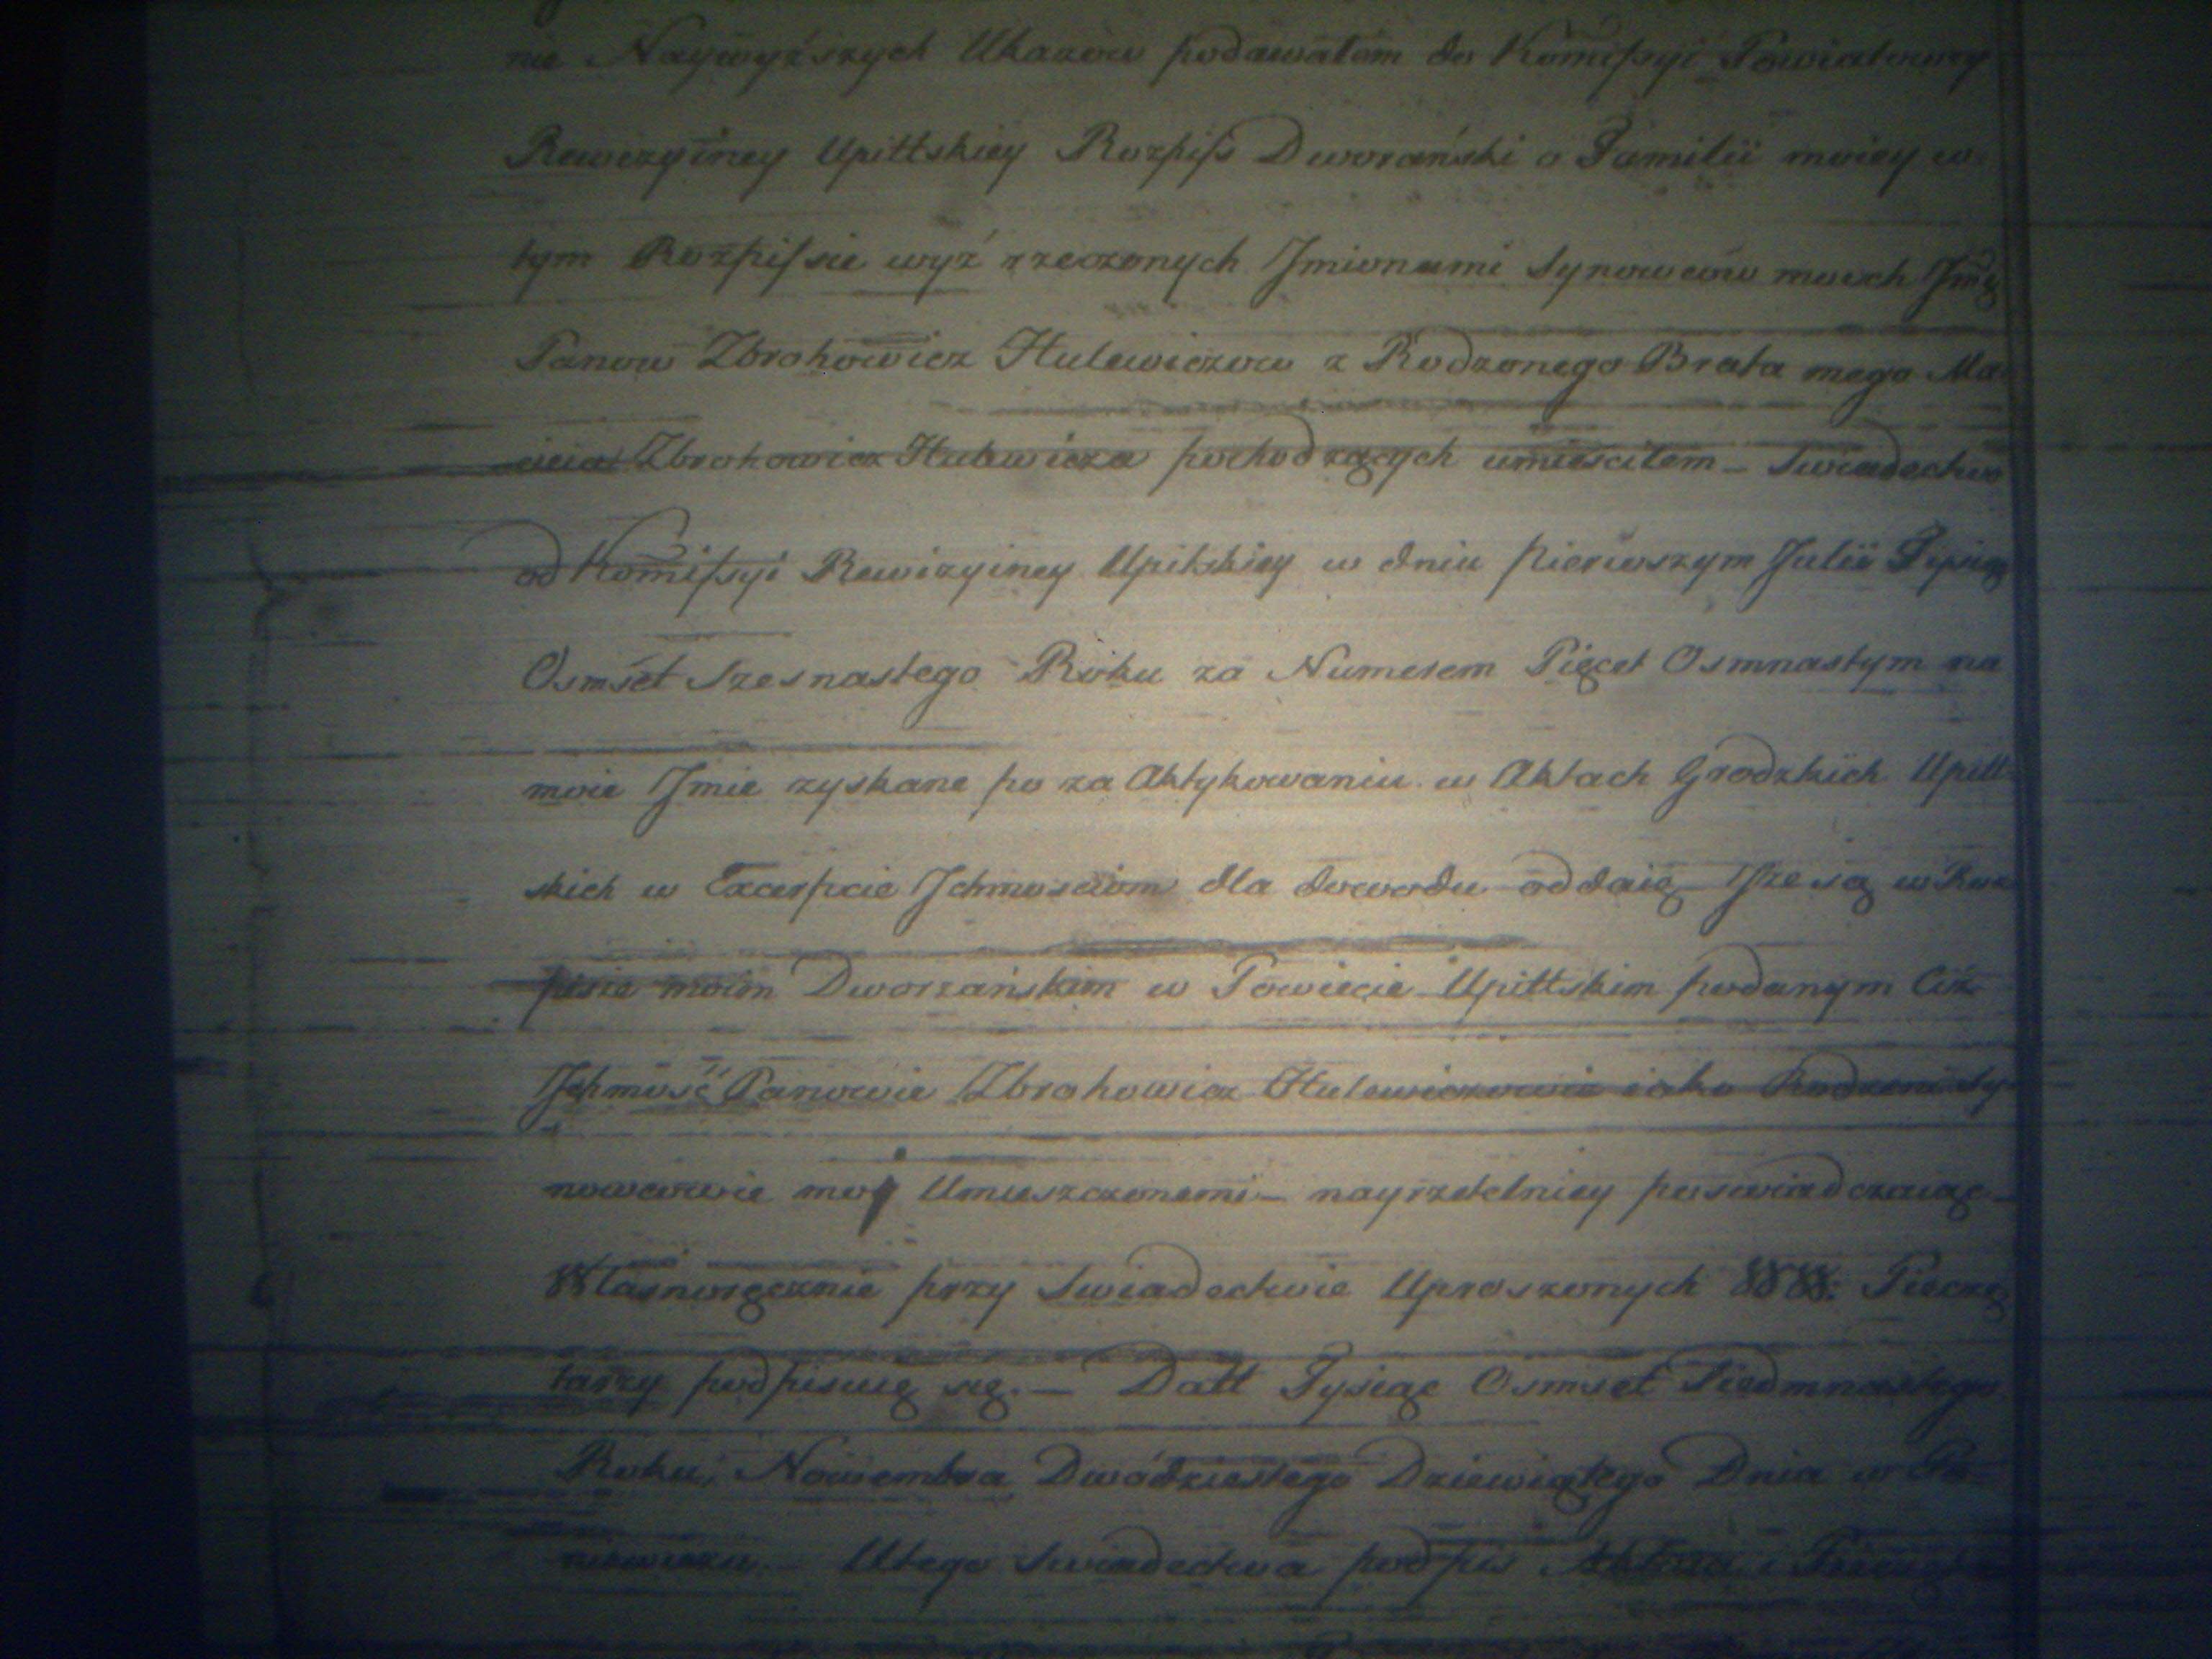 nie Naywyższych Ukazow podawałam do Komissyi Powiatowey
Rewizyiney Upittskiey Rozpiss Dworański o Familii moiey w
tym Rozpissie wyż rzeczonych Imionami Synowców moich Jmć
Panow Zbrohowicz Hulewiczow z Rodzonego Brata mego Ma
cieia Zbrohowicz Hulewicza pochodzących umieściłem – Swiadectwo
od Komissyi Rewizyiney Upitskiey w dniu Pierwszym Julii Tysiąc
Osmset Szesnastego Roku za Numerem Pięcet Osmnastym na
moie Jmie zyskane po za Aktykowaniu w Aktach Grodzkich Upitt
skich w Excerpcie Ichmościom dla dowodu oddaię Iże są w Roz
pisie moim Dworzańskim w Powiecie Upittskim podanym Ciż
Ichmość Panowie Zbrohowicz Hulewiczowie iako Rodzeni Sy
nowcowie moj Umieszczonemi – nayrzetelniey poswiadczaiąc –
Własnoręcznie przy Swiadectwie Uproszonych WW: Pieczę
tarzy podpisuię się. – Datt Tysiąc Osmset Siedmnastego
Roku, Nowembra Dwódziestego Dziewiątego Dnia w Po
niewieżu. – U tego Swiadectwa podpis Aktora i